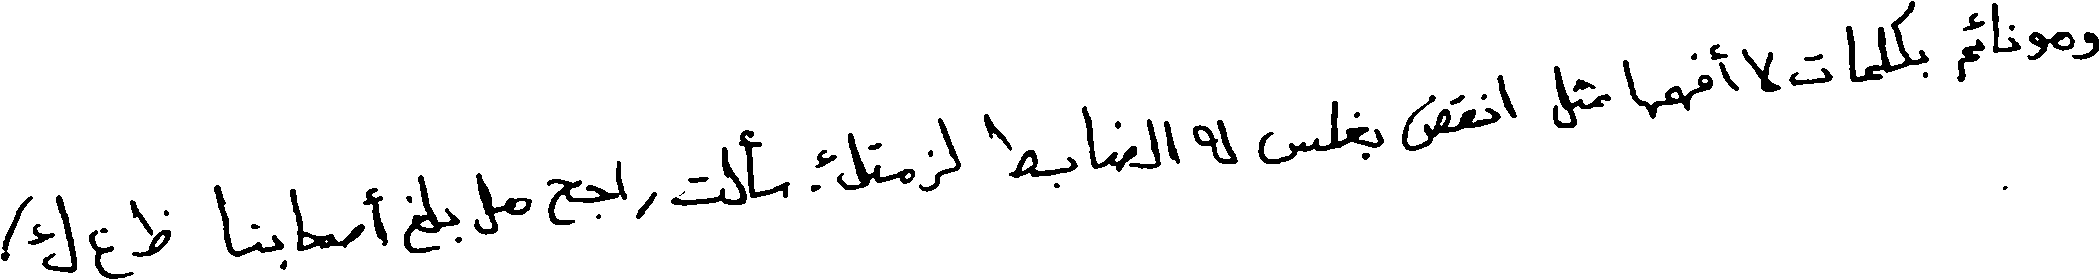 وهو نائم بكلمات لا أفهمها مثل انقض بغلس له الضابط لزمتك. سألت راجح هل بلغ أصحابنا ظ غ ك/